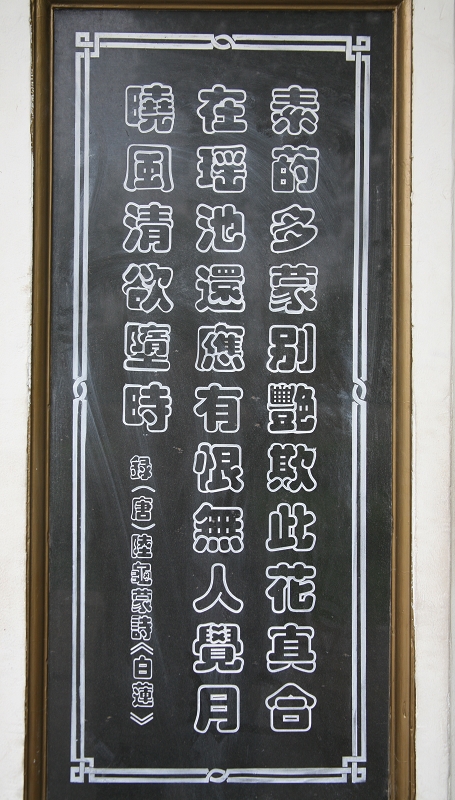 素菂多蒙别艷欺此花真合
在瑶池還應有恨無人覺月
曉風清欲墮時 録（唐）陸龜蒙詩《白蓮》